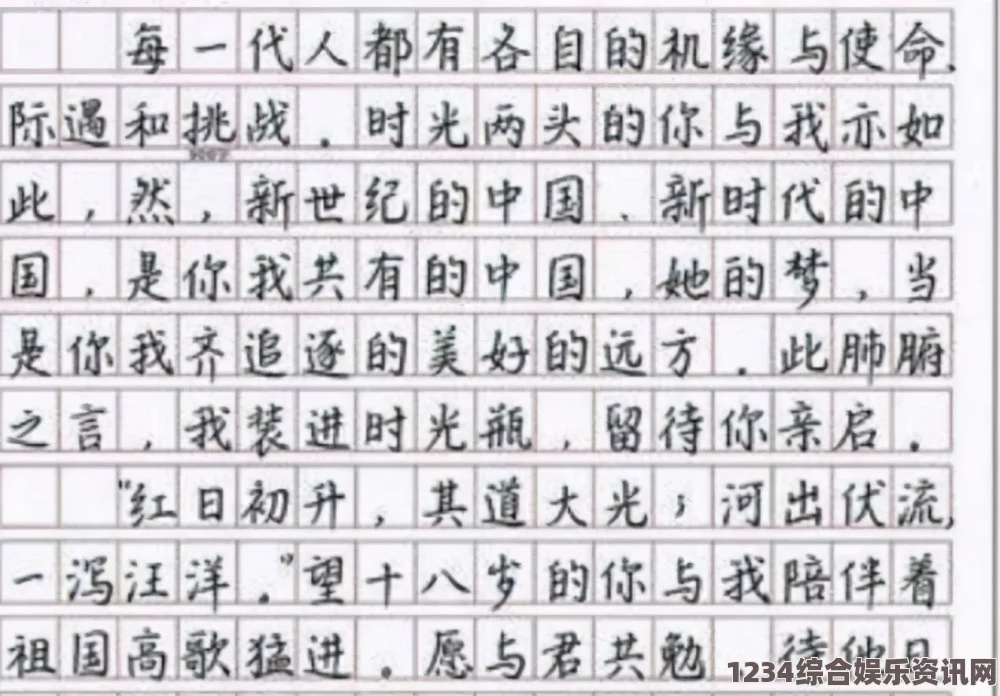 每一代人都有各自的机缘与使命、
际遇和挑战。时光两头的你与我亦如
此，然，新世纪的中国、新时代的中
国，是你我共有的中国，她的梦，当
是你我齐追逐的美好的远方。此肺腑
之言，我装进时光瓶，留待你亲启。
"红日初升，其道大光；河出伏流，
一泻汪洋。"望十八岁的你与我陪伴着
祖国高歌猛进。愿与君共勉 待他日
1234综合娱乐资讯网